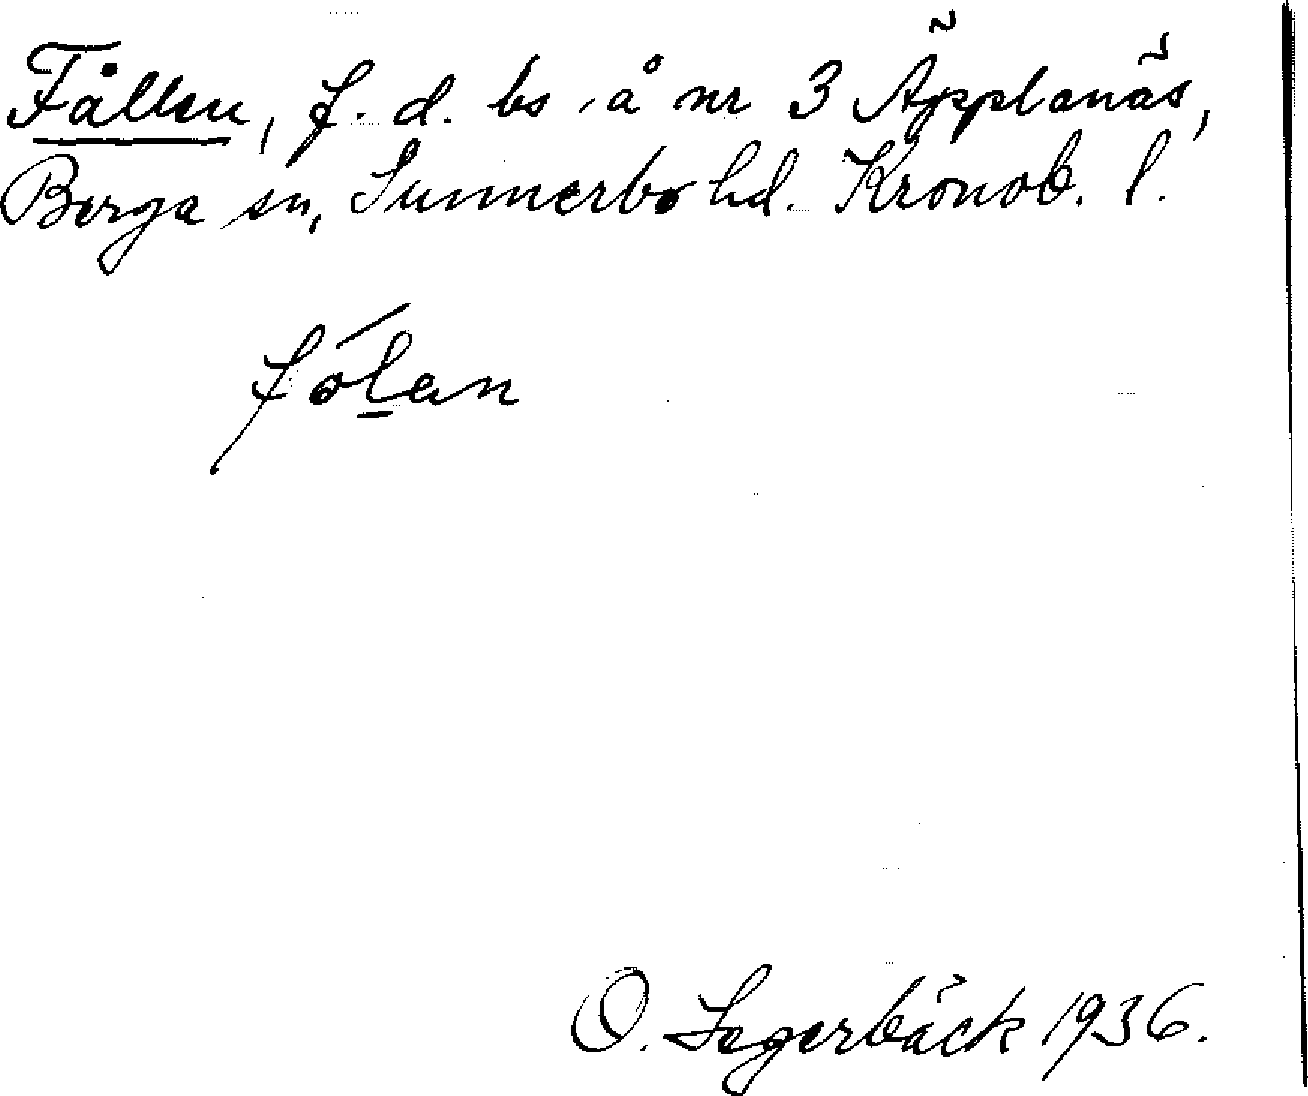 Fållen, f. d. bs å nr 3 Äpplanäs,
Berga sn, Sunnerbo hd. Kronob. l.
fó̱lan
O. Segerbäck 1936.